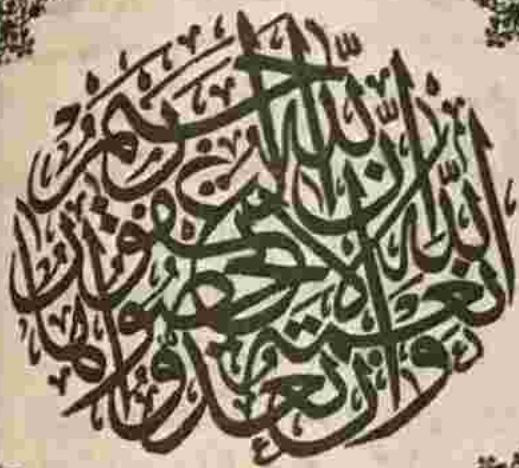 وان تعدوا نعمة الله لا تحصوها ان الله لغفور رحيم